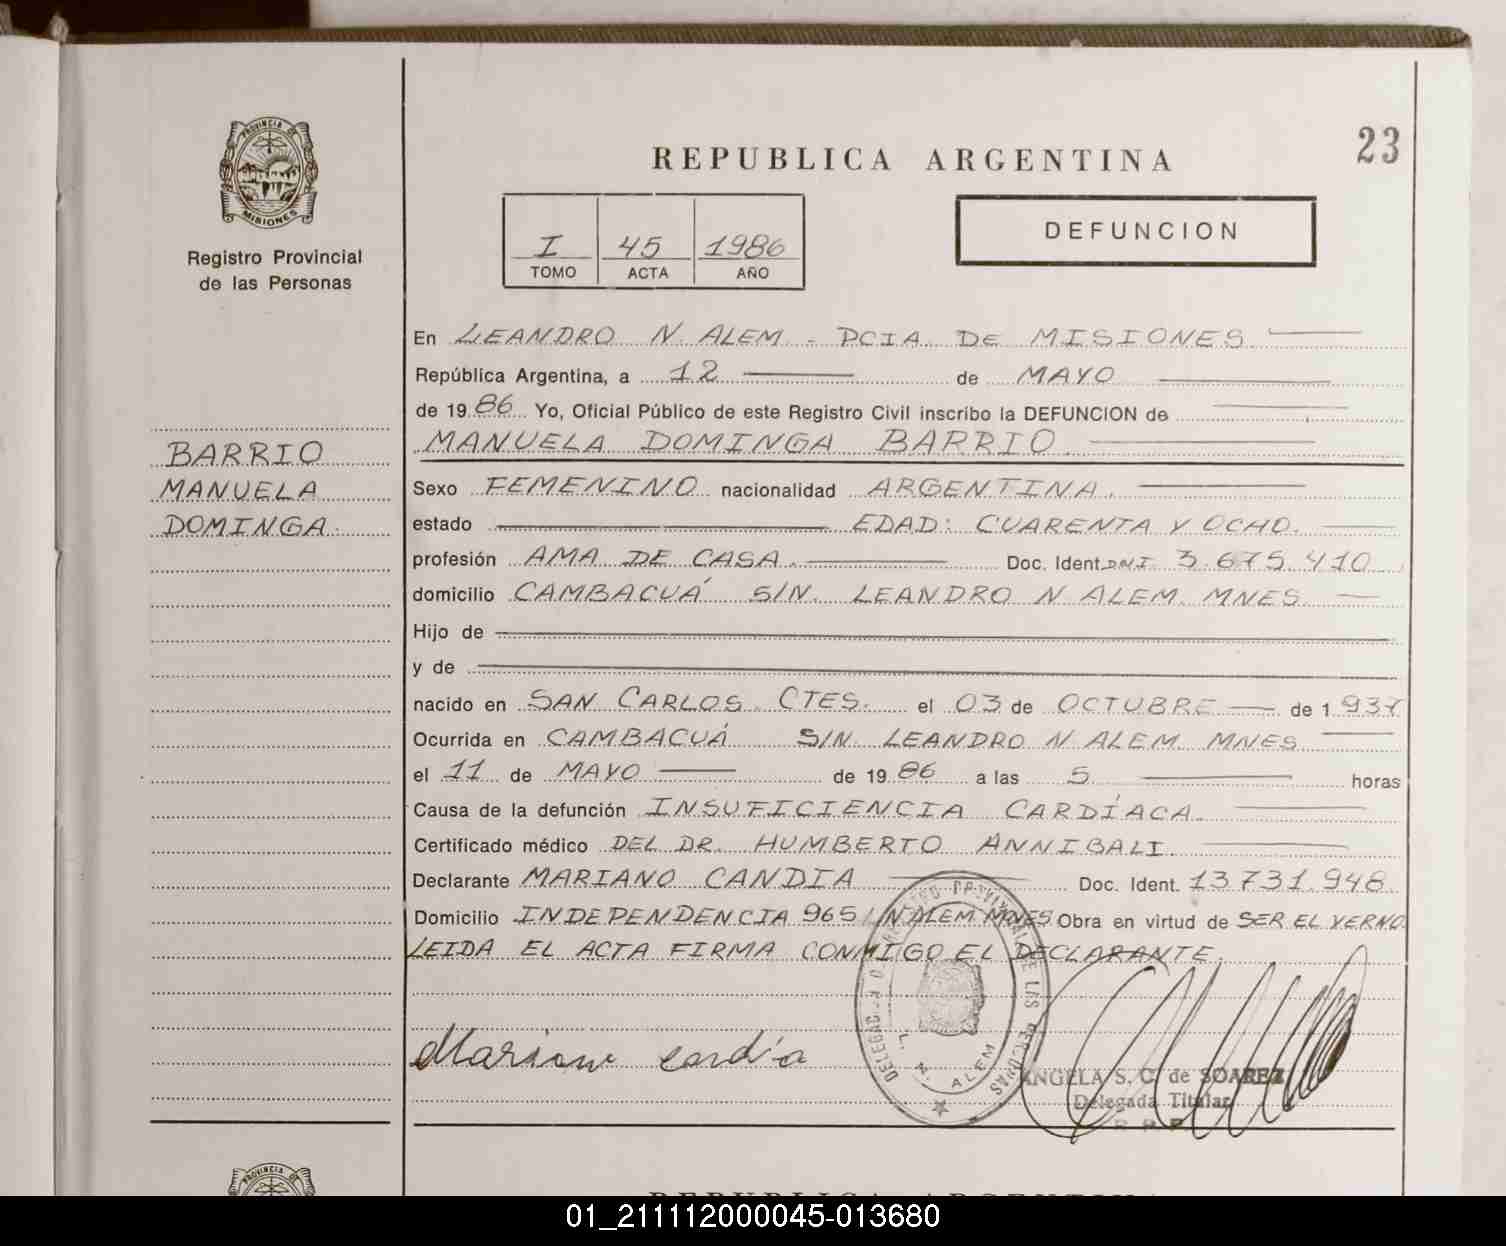 PROVINCIA DE
MISIONES
Registro Provincial
de las Personas
BARRIO
MANUELA
DOMINGA.
23
REPUBLICA ARGENTINA
I 45 1986
TOMO ACTA AÑO
DEFUNCION
En LEANDRO N. ALEM. - PCIA. DE MISIONES
República Argentina, a 12 de MAYO
de 1986 Yo, Oficial Público de este Registro Civil inscribo la DEFUNCION de
MANUELA DOMINGA BARRIO.
Sexo FEMENINO nacionalidad ARGENTINA.
estado EDAD: CUARENTA Y OCHO.
profesión AMA DE CASA. Doc. Ident. DNI. 3.675.410
domicilio CAMBACUÁ S/N. LEANDRO N ALEM. MNES
Hijo de
y de
nacido en SAN CARLOS. CTES. el 03 de OCTUBRE de 1937
Ocurrida en CAMBACUÁ S/N. LEANDRO N ALEM. MNES
el 11 de MAYO de 1986 a las 5 horas
Causa de la defunción INSUFICIENCIA CARDÍACA.
Certificado médico DEL DR. HUMBERTO ANNIBALI.
Declarante MARIANO CANDIA Doc. Ident. 13731.948
Domicilio INDEPENDENCIA 965 L N ALEM MNES Obra en virtud de SER EL YERNO.
LEIDA EL ACTA FIRMA CONMIGO EL DECLARANTE.
Mariano Candia
L. N. ALEM
ANGELA S. C. de SOAREZ
Delegada Titular
R P P
PROVINCIA
REPUBLICA ARGENTINA
01_211112000045-013680